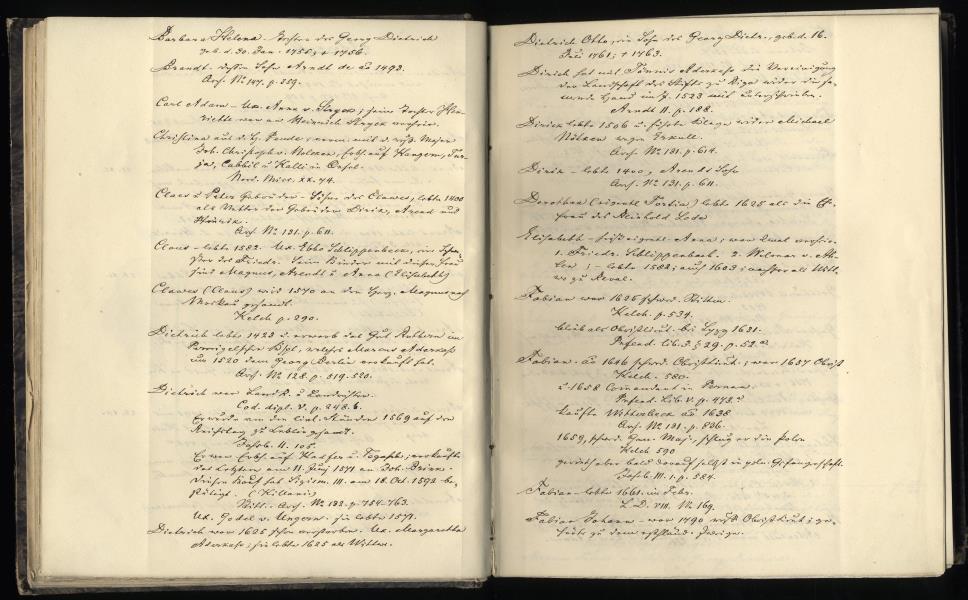 Barbara Helena - Tochter des Georg Dietrich
geb. d. 30. Jan. 1755; + 1756.
Brandt. dessen Sohn Arndt de ao 1493.
Arch. No 147. p. 559.
Carl Adam - Ux. Anna v. ; seine Tochter Hen-
riette war an Heinrich
Christina aus d. H. verm. mit d. russ. Major
Joh. Christoph v. Nolcken, Erbh. auf Kangern,
Cabbil u Kalli in Oesel.
Nord. Misc. XX. 74.
Claes u Peter Gebrüder - Söhne des Clawes, lebte 1400
als Vetter der Gebrüder Dirix, Arend und
Hinrik.
Arch. No 131. p. 611.
Claus - lebte 1582. Ux. Ebbe Schlippenbeck, ein Schwe-
ster des Friedr. Seine Kinder mit dieser Frau
sind Magnus, Arendt u Anna (Elisabeth)
Clawes (Claus) wird 1570 an den Herz. Magnus nach
Moskau gesandt.
Kelch p. 290.
Dietrich lebte 1422 u. erwarb das Gut im
Pernigelschen Kspl, welches Marcus Aderkass
um 1520 dem Georg verkauft hat.
Arch. No 128. p. 519. 520.
Dietrich war Landr. u Landrichter.
Cod. dipl. V. p. 248. 6.
Er wurde von den livl. Ständen 1569 auf den
Reichstag zu Lublin gesandt.
II. 105.
Er war Erbh. auf Kadfer u. ; verkaufte
das Letztere am 11. Junj 1571 an Joh.
Diesen Kauf hat Sigism. III. am 18. Oct. 1592 be-
stätigt. (Killani)
Ritt. Arch. No 132. p. 754-763.
Ux. Godel v. Ungern. sie lebte 1577.
Dietrich war 1625 schon verstorben. Ux. Margaretha
Aderkass; sie lebte 1625 als Wittwe.
Dietrich Otto, ein Sohn des Georg Dietr., geb. d. 16.
Juli 1761; + 1763.
Dirich hat mit Tönnis Aderkass die Vereinigung
der Landschaft des Stifts zu Riga wider die
Hand im J. 1523 mit unterschrieben.
Arndt II. p. 188.
Dirick lebte 1506 u. führte Klage wider Michael
Nötken wegen
Arch. No 131. p. 614.
Dirix - lebte 1400, Arends Sohn
Arch. No 131. p. 611.
Dorothea (eigentl. ) lebte 1625 als die Eh-
frau des Reinhold Lode
Elisabeth - hiess eigentl. Anna; war 2mal verheir.
1. Friedr. Schlippenbach. 2. Wolmar v.
; - lebte 1582; auch 1603; als Witt-
we zu Reval.
Fabian war 1626 schwed. Rittm.
Kelch. p. 534.
blieb als Obristlieut. bei 1631.
Pufend. lib. 3. § 29. p. 52.
Fabian - ao 1646 schwed. Obristlieut.; war 1657 Obrist
Kelch. 580.
u 1658 Comendant in Pernau.
Pufend. Lib. V. p. 472.
kaufte Wittenbeck ao 1638
Arch. No 131. p. 836.
1659, schwed. Gen. Maj., schlug er die Polen
Kelch 590
gerieth aber bald darauf selbst in poln. Gefangenschaft.
III. 1. p. 584.
Fabian - lebte 1661. im Febr.
L. D. VIII. No 169.
Fabian Johann - war 1790 russ. Obristlieut;